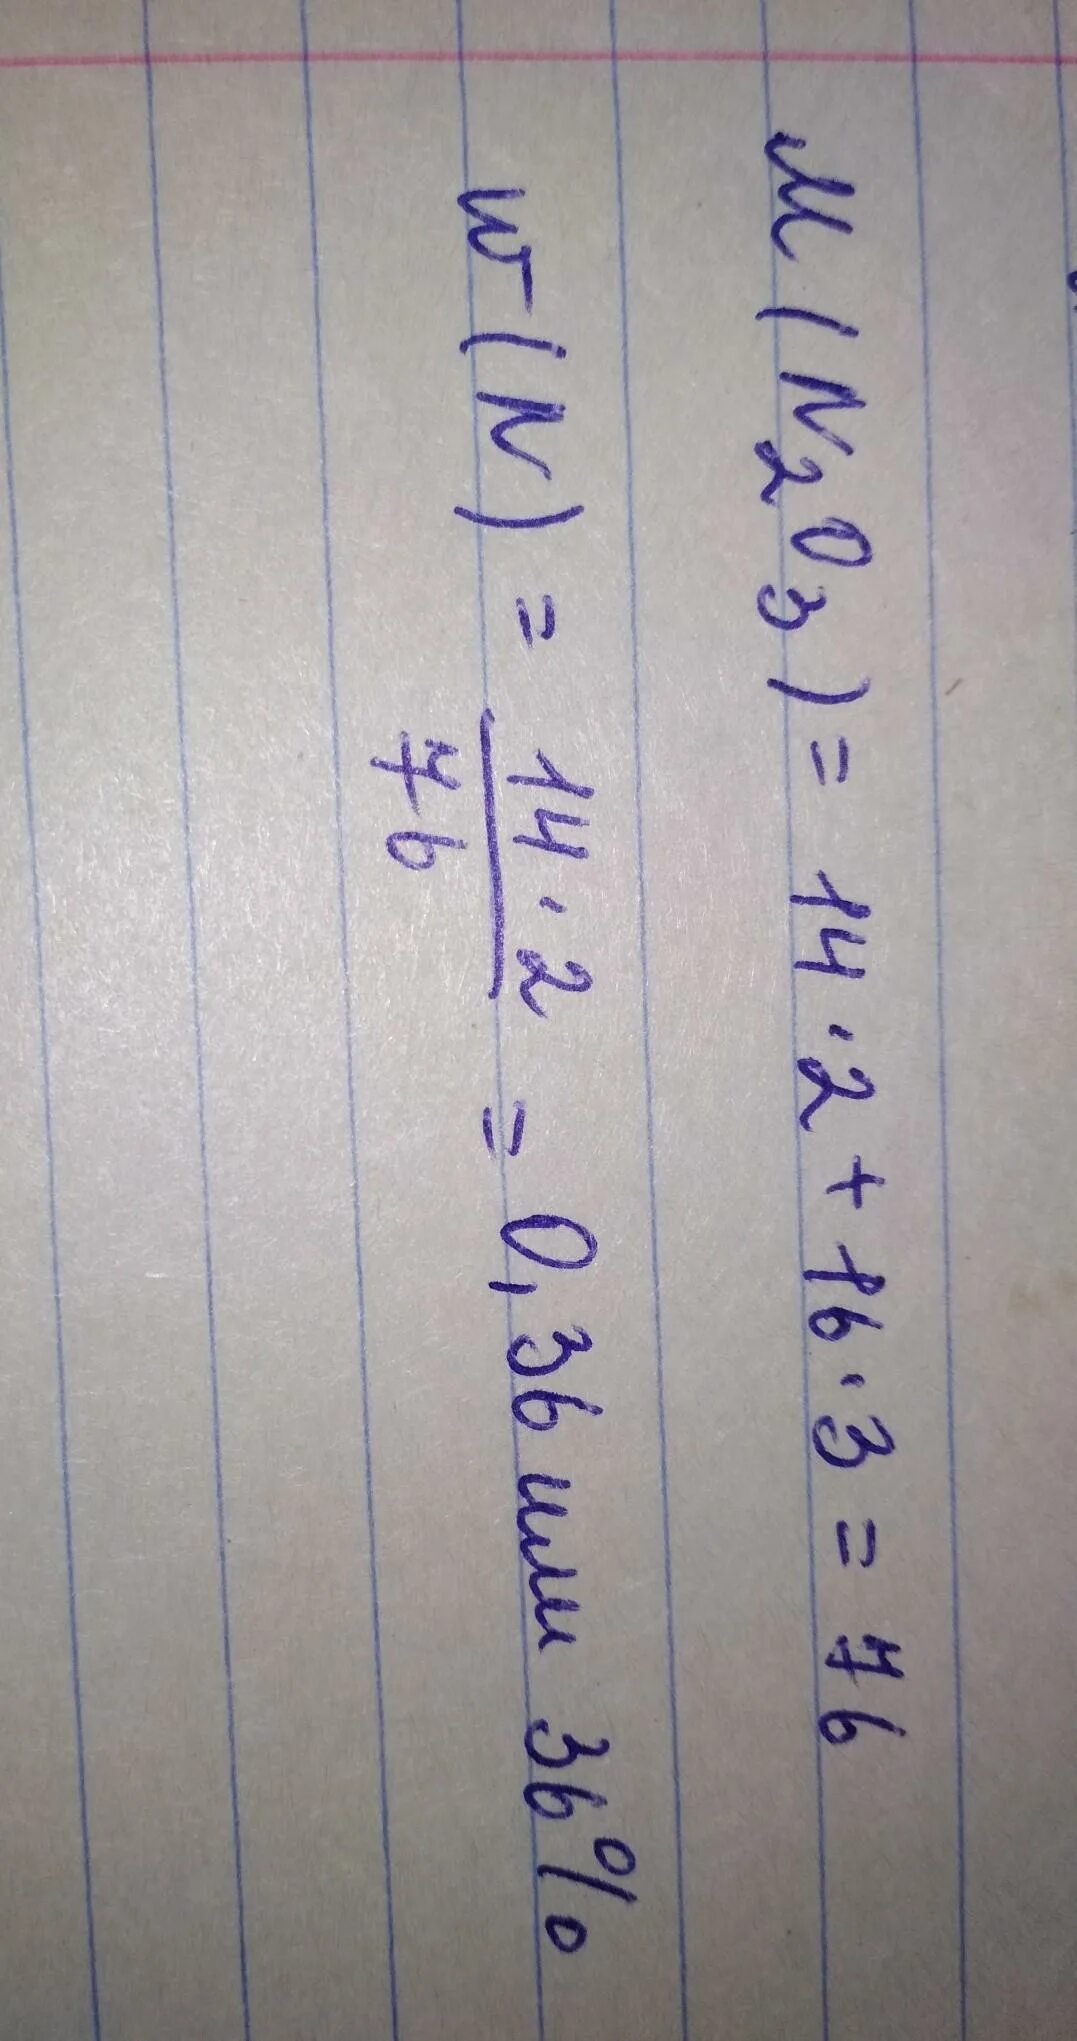 M(N₂O₃) = 14·2+16·3 = 76
w(N) = 14·2/76 = 0,36 или 36%